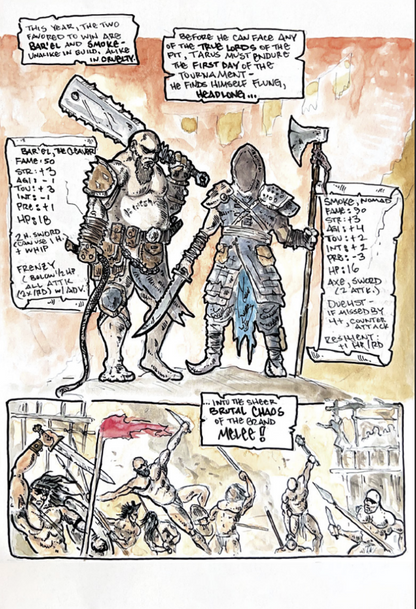 THIS YEAR, THE TWO
FAVORED TO WIN ARE
BAR'EL AND SMOKE-
UNALIKE IN BUILD, ALIKE
IN CRUELTY.
BEFORE HE CAN FACE ANY
OF THE TRUE LORDS OF THE
PIT, TARUS MUST ENDURE
THE FIRST DAY OF THE
TOURNAMENT-
HE FINDS HIMSELF FLUNG,
HEADLONG...
BAR'EL, THE CLEAVER
FAME: 50
STR: +3
AGI: -1
TOU: +3
INT: -1
PRE: +1
HP: 18
2 H. SWORD
CAN USE 1 H.
+ WHIP
FRENZY
(BELOW 1/2 HP
ALL ATTK
(2X/RD) W/ ADV.
SMOKE, NOMAD
FAME: 30
STR: +3
AGI: +4
TOU: +2
INT: +2
PRE: -3
HP: 16
AXE, SWORD
(2 ATTK)
DUELIST-
IF MISSED BY
4+, COUNTER
ATTACK
RESILIENT:
+1 HP/RD
...INTO THE SHEER
BRUTAL CHAOS
OF THE GRAND
MELEE!